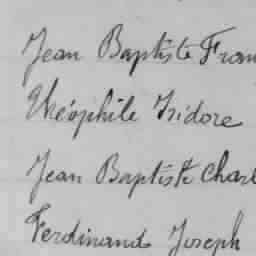 Jean Baptiste Fran
Théophile Isidore
Jean Baptiste Charl
Ferdinand Joseph